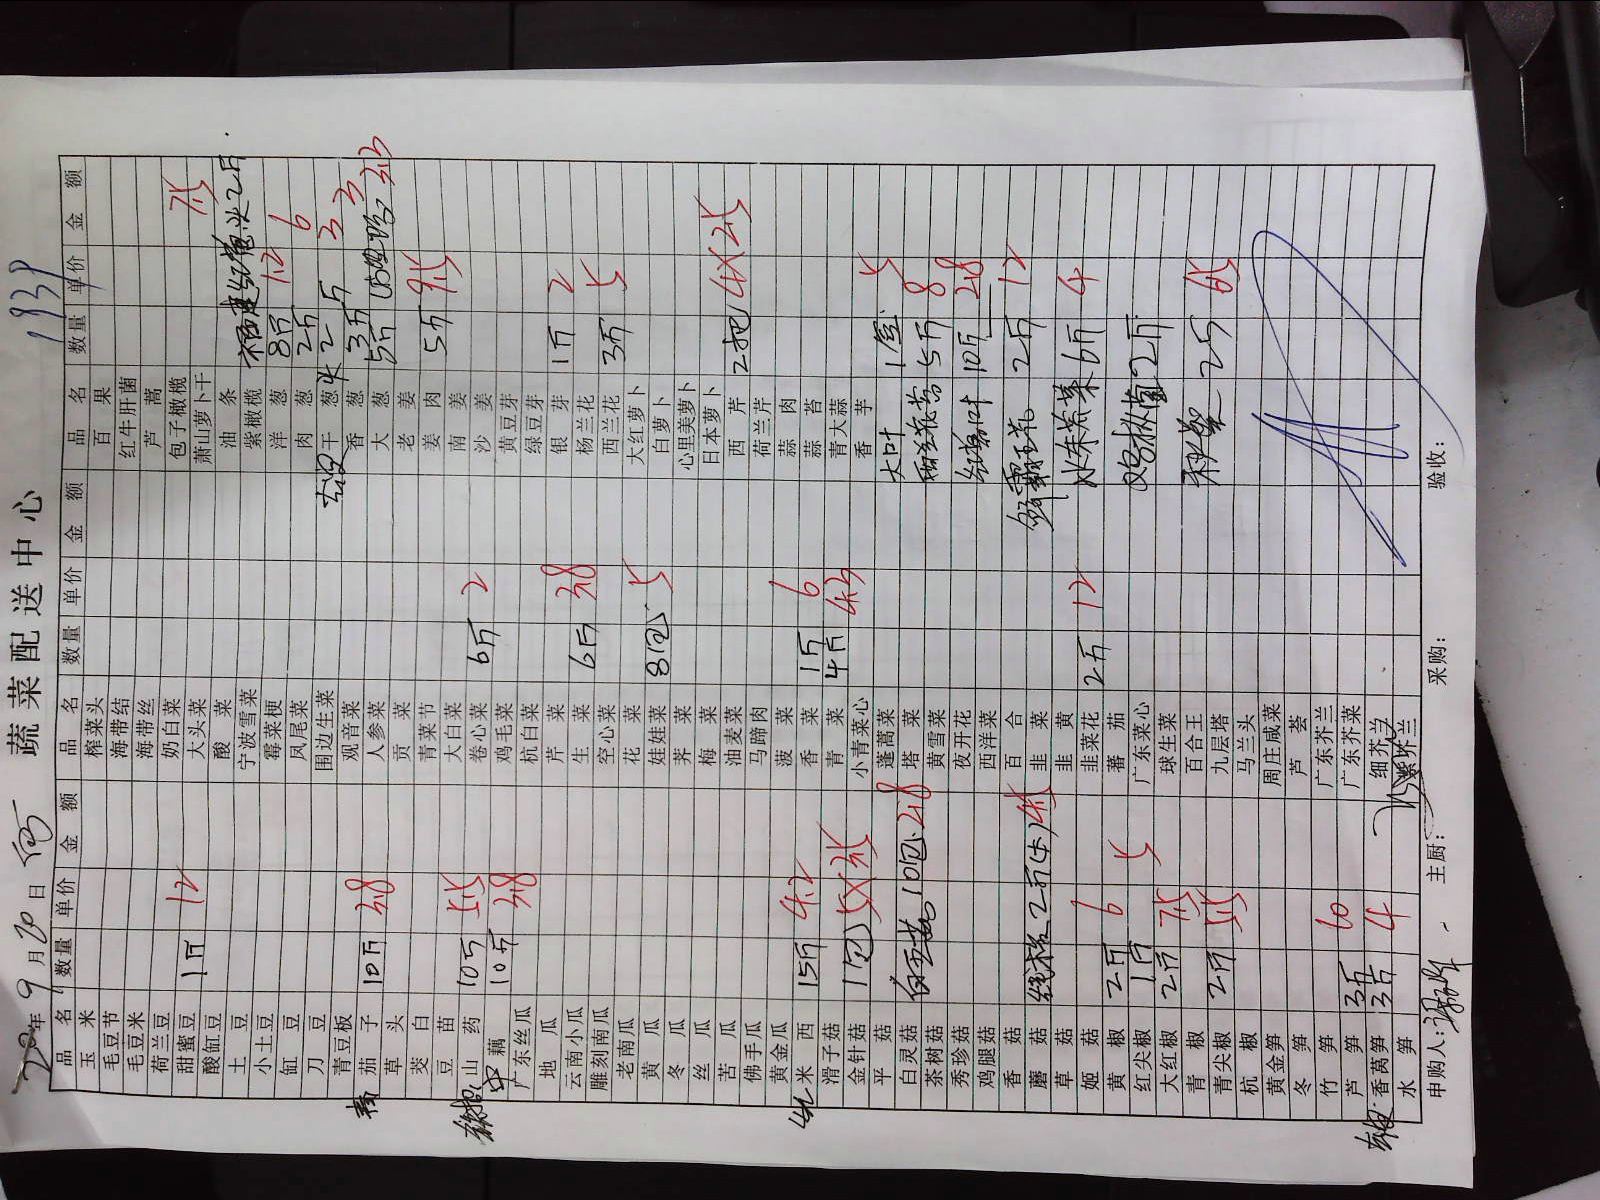 蔬菜配送中心
1939
202年9月20日
品名 数量 单价 金额 品名 数量 单价 金额 品名 数量 单价 金额
玉米 榨菜头 百果
毛豆节 海带结 红牛肝菌
毛豆米 海带丝 芦蒿
荷兰豆 奶白菜 包子橄榄
甜蜜豆 1斤 12 大头菜 萧山萝卜干 7.5
酸缸豆 酸菜 油条
土豆 宁波雪菜 紫橄榄 红葱头2斤
小土豆 霉菜梗 洋葱 8斤 1.2
缸豆 凤尾菜 肉葱 2斤 6
刀豆 围边生菜 干葱头 2斤 3
青豆板 观音菜 香葱 3斤 3
茄子 10斤 3.8 人参菜 大葱 5斤 3.3
草头 贡菜 老姜
茭白 青菜节 姜肉 5斤 9.5
豆苗 大白菜 南姜
山药 10斤 5.5 卷心菜 6斤 2 沙姜
中藕 10斤 3.8 鸡毛菜 黄豆芽
广东丝瓜 杭白菜 绿豆芽
地瓜 芹菜 银芽 1斤 2
云南小瓜 生菜 6斤 3.8 杨兰花
雕刻南瓜 空心菜 西兰花 3斤 5
老南瓜 花菜 大红萝卜
黄瓜 娃娃菜 8包 5 白萝卜
冬瓜 荠菜 心里美萝卜
丝瓜 梅菜 日本萝卜
苦瓜 油麦菜 西芹 2把 4X2.5
佛手瓜 马蹄肉 荷兰芹
黄金瓜 菠菜 蒜肉
米西 15斤 4.2 香菜 1斤 6 蒜苔
滑子菇 青菜 4斤 4.3 青大蒜
金针菇 1包 5X3.5 小青菜心 香芋
平菇 蓬蒿菜 大叶 1盒 5
白灵菇 白玉菇 10包 2.8 塔菜 甜兰花苔 5斤 8
茶树菇 黄雪菜
秀珍菇 夜开花 红薯叶 10斤 2.8
鸡腿菇 西洋菜
香菇 百合 霸王花 2斤 12
蘑菇 2斤 4.5 韭菜
草菇 韭黄 水东芥菜 6斤 4
姬菇 韭菜花 2斤 12
黄椒 2斤 6 蕃茄 鸡枞菌 2斤
红尖椒 1斤 5 广东菜心
大红椒 2斤 7.5 球生菜 秋葵 2斤 6.5
青椒 百合王
青尖椒 2斤 5.5 九层塔
杭椒 马兰头
黄金笋 周庄咸菜
冬笋 芦荟
竹笋 广东芥兰
芦笋 3斤 10 广东芥菜
香莴笋 3斤 4 细芥兰
水笋 紫芥兰
申购人: 主厨: 采购: 验收: